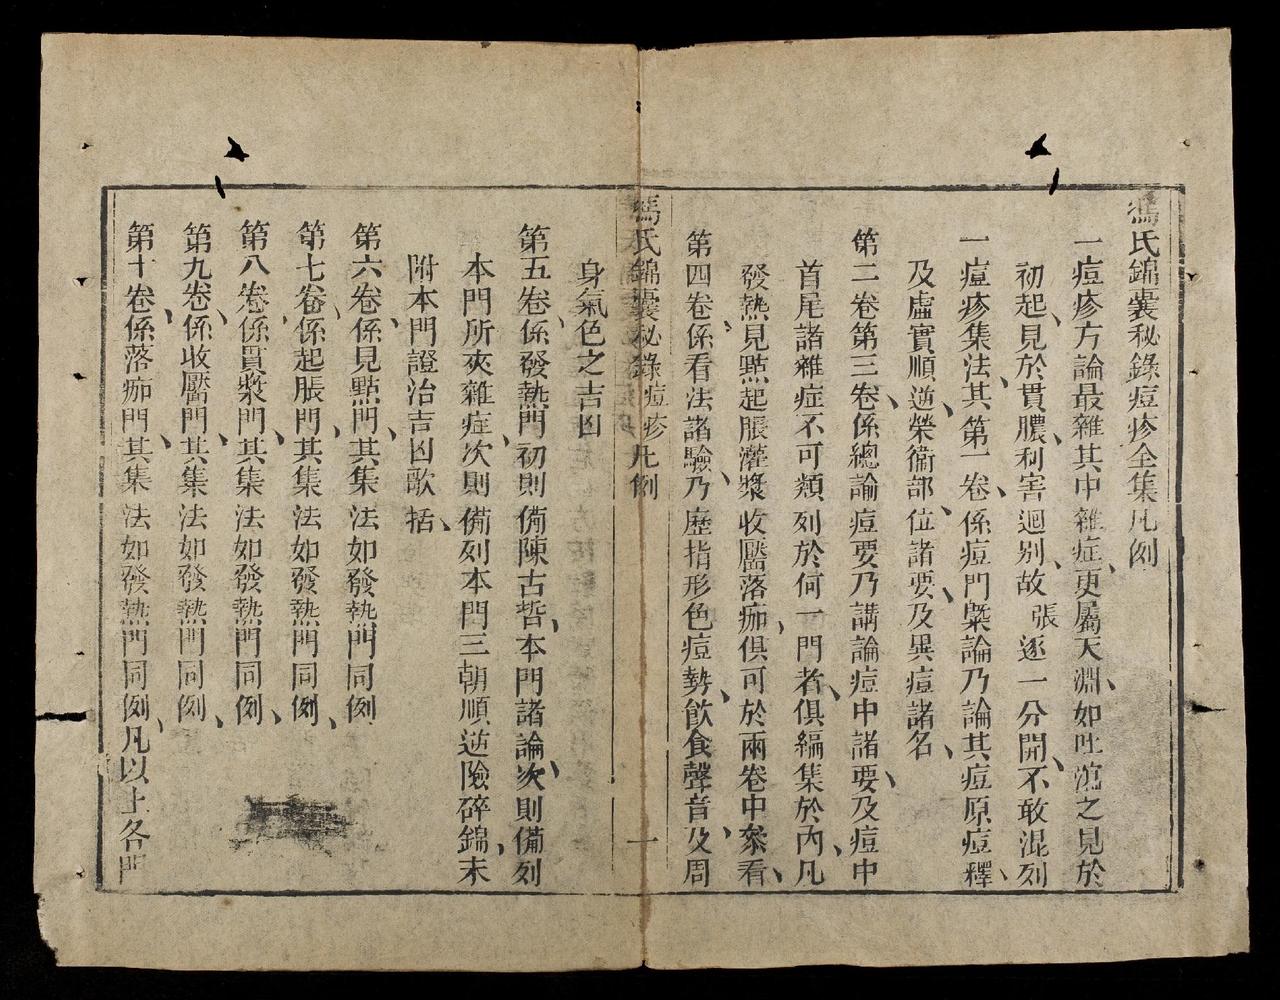 馮氏錦囊秘錄痘疹全集凡例
一痘疹方論最雜其中雜症更屬天淵如吐瀉之見於
初起見於貫膿利害迥別故張逐一分開不敢混列
一痘疹集法其第一卷係痘門槩論乃論其痘原痘釋
及虛實順逆榮衞部位諸要及異痘諸名
第二卷第三卷係總論痘要乃講論痘中諸要及痘中
首尾諸雜症不可類列於何一門者俱編集於內凡
發熱見點起脹灌漿收靨落痂俱可於兩卷中叅看
第四卷係看法諸驗乃歷指形色痘勢飲食聲音及周
馮氏錦囊秘錄痘疹凡例 一
身氣色之吉凶
第五卷係發熱門初則備陳古哲本門諸論次則備列
本門所夾雜症次則備列本門三朝順逆險碎錦末
附本門證治吉凶歌括
第六卷係見點門其集法如發熱門同例
第七卷係起脹門其集法如發熱門同例
第八卷係貫漿門其集法如發熱門同例
第九卷係收靨門其集法如發熱門同例
第十卷係落痂門其集法如發熱門同例凡以上各門